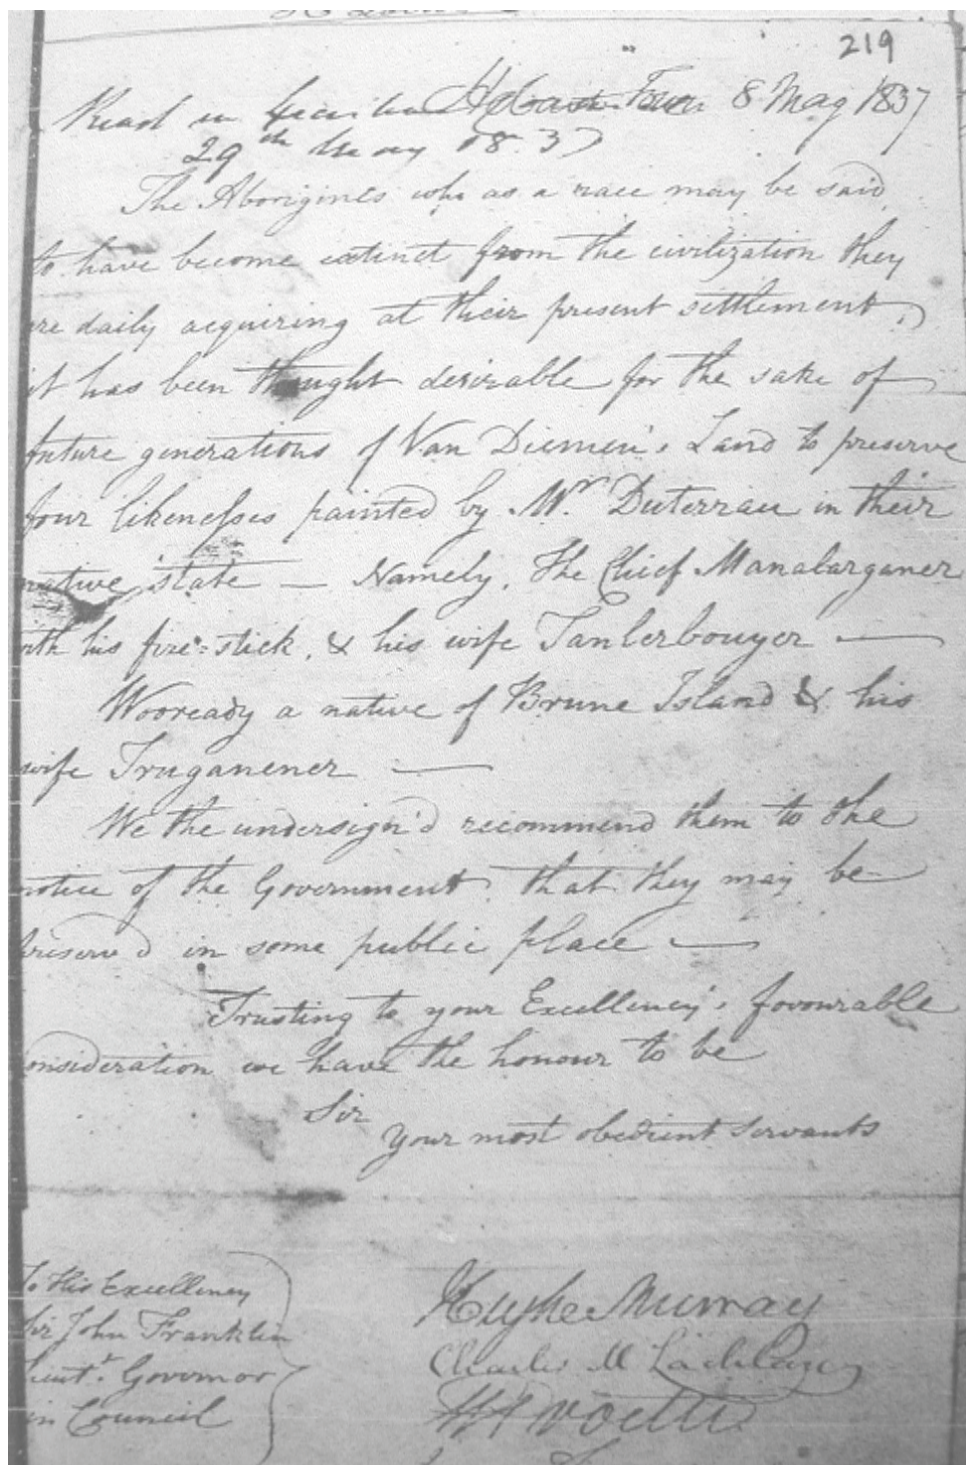 219
Read in Council Hobart Town 8 May 1837
29th May 1837
The Aborigines who as a race may be said
to have become extinct from the civilization they
are daily acquiring at their present settlement,
it has been thought desirable for the sake of
future generations of Van Diemen's Land to preserve
four likenesses painted by Mr. Duterrau in their
native state — Namely, The Chief Manalarganer
with his fire-stick, & his wife Tanlerbouyer —
Wooready a native of Brune Island & his
wife Truganener —
We the undersign'd recommend them to the
notice of the Government that they may be
preserv'd in some public place —
Trusting to your Excellency's favourable
consideration we have the honour to be
Sir
Your most obedient Servants
To His Excellency
Sir John Franklin
Lieut. Governor
in Council
Hughe Murray
Charles McLachlan